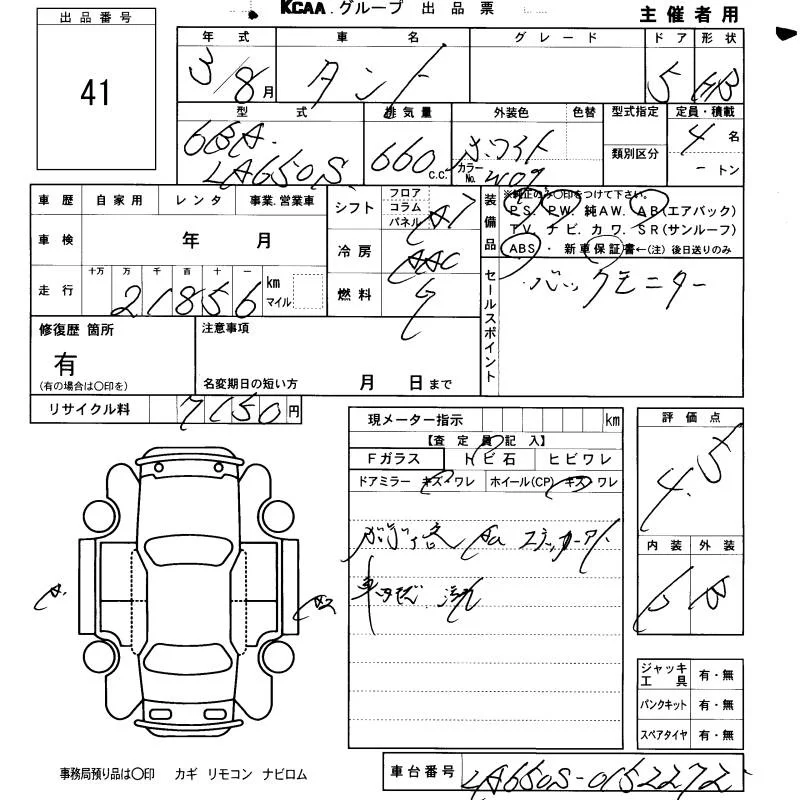 KCAA グループ 出品票
主催者用
出品番号
41
年式 車名 グレード ドア 形状
3/8月 タント 5 HB
型式 排気量 外装色 色替 型式指定 定員・積載
6BA- 660 c.c. ホワイト 類別区分 4名
LA650S カラーNo. W09 トン
車歴 自家用 レンタ 事業.営業車
車検 年 月
十万 万 千 百 十 一
走行 21856 km マイル
シフト フロア コラム パネル AT
冷房 AAC
燃料 G
装備品 ※純正のみ〇印をつけて下さい。
PS. PW. 純AW. AB(エアバック)
TV. ナビ. カワ. SR(サンルーフ)
ABS. 新車保証書←(注) 後日送りのみ
セールスポイント バックモニター
修復歴 箇所
有
(有の場合は〇印を)
注意事項
名変期日の短い方 月 日まで
リサイクル料 7150円
現メーター指示 km
【査定員記入】
Fガラス トビ石 ヒビワレ
ドアミラー キズ・ワレ ホイール(CP) キズ・ワレ
評価点
4.5
内装 外装
B
A
ジャッキ工具 有・無
パンクキット 有・無
スペアタイヤ 有・無
事務局預り品は〇印 カギ リモコン ナビロム
車台番号 LA650S-0152272